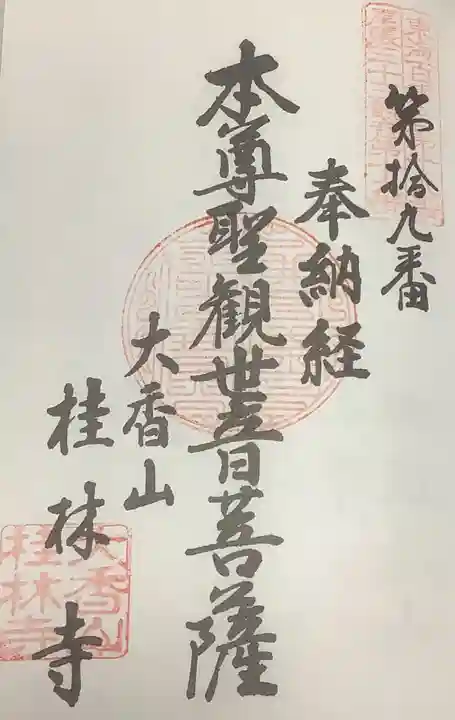 第拾九番
奉納経
本尊聖観世音菩薩
大香山
桂林寺
大香山
桂林寺